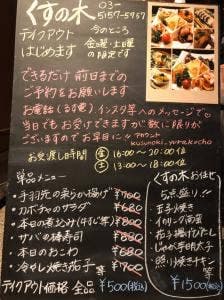 くすの木 03-5157-5957
テイクアウト はじめます
今のところ 金曜・土曜の限定です
できるだけ 前日までの
ご予約をお願いします
お電話(くすの木)、インスタ等へのメッセージで
当日でもお受けできますが 数に限りが
ございますので お早目に
アカウント kusunoki_yurakucho
お受渡し時間
金 16:00~20:00位
土 13:00~18:00位
単品メニュー
・手羽先の柔らか揚げ ¥700
・カボチャのサラダ ¥680
・本日の煮込み(牛すじ等) ¥800
・サバの棒寿司 ¥880
・本日のおこわ ¥680
・冷やし焼き茄子 等 ¥700
テイクアウト価格 全品 ¥500(税込)
くすの木お任せ
5点盛り!!
玉子焼き
花子揚げひたし
じゃが辛明太子
照り焼きチキン 等
¥1500(税込)